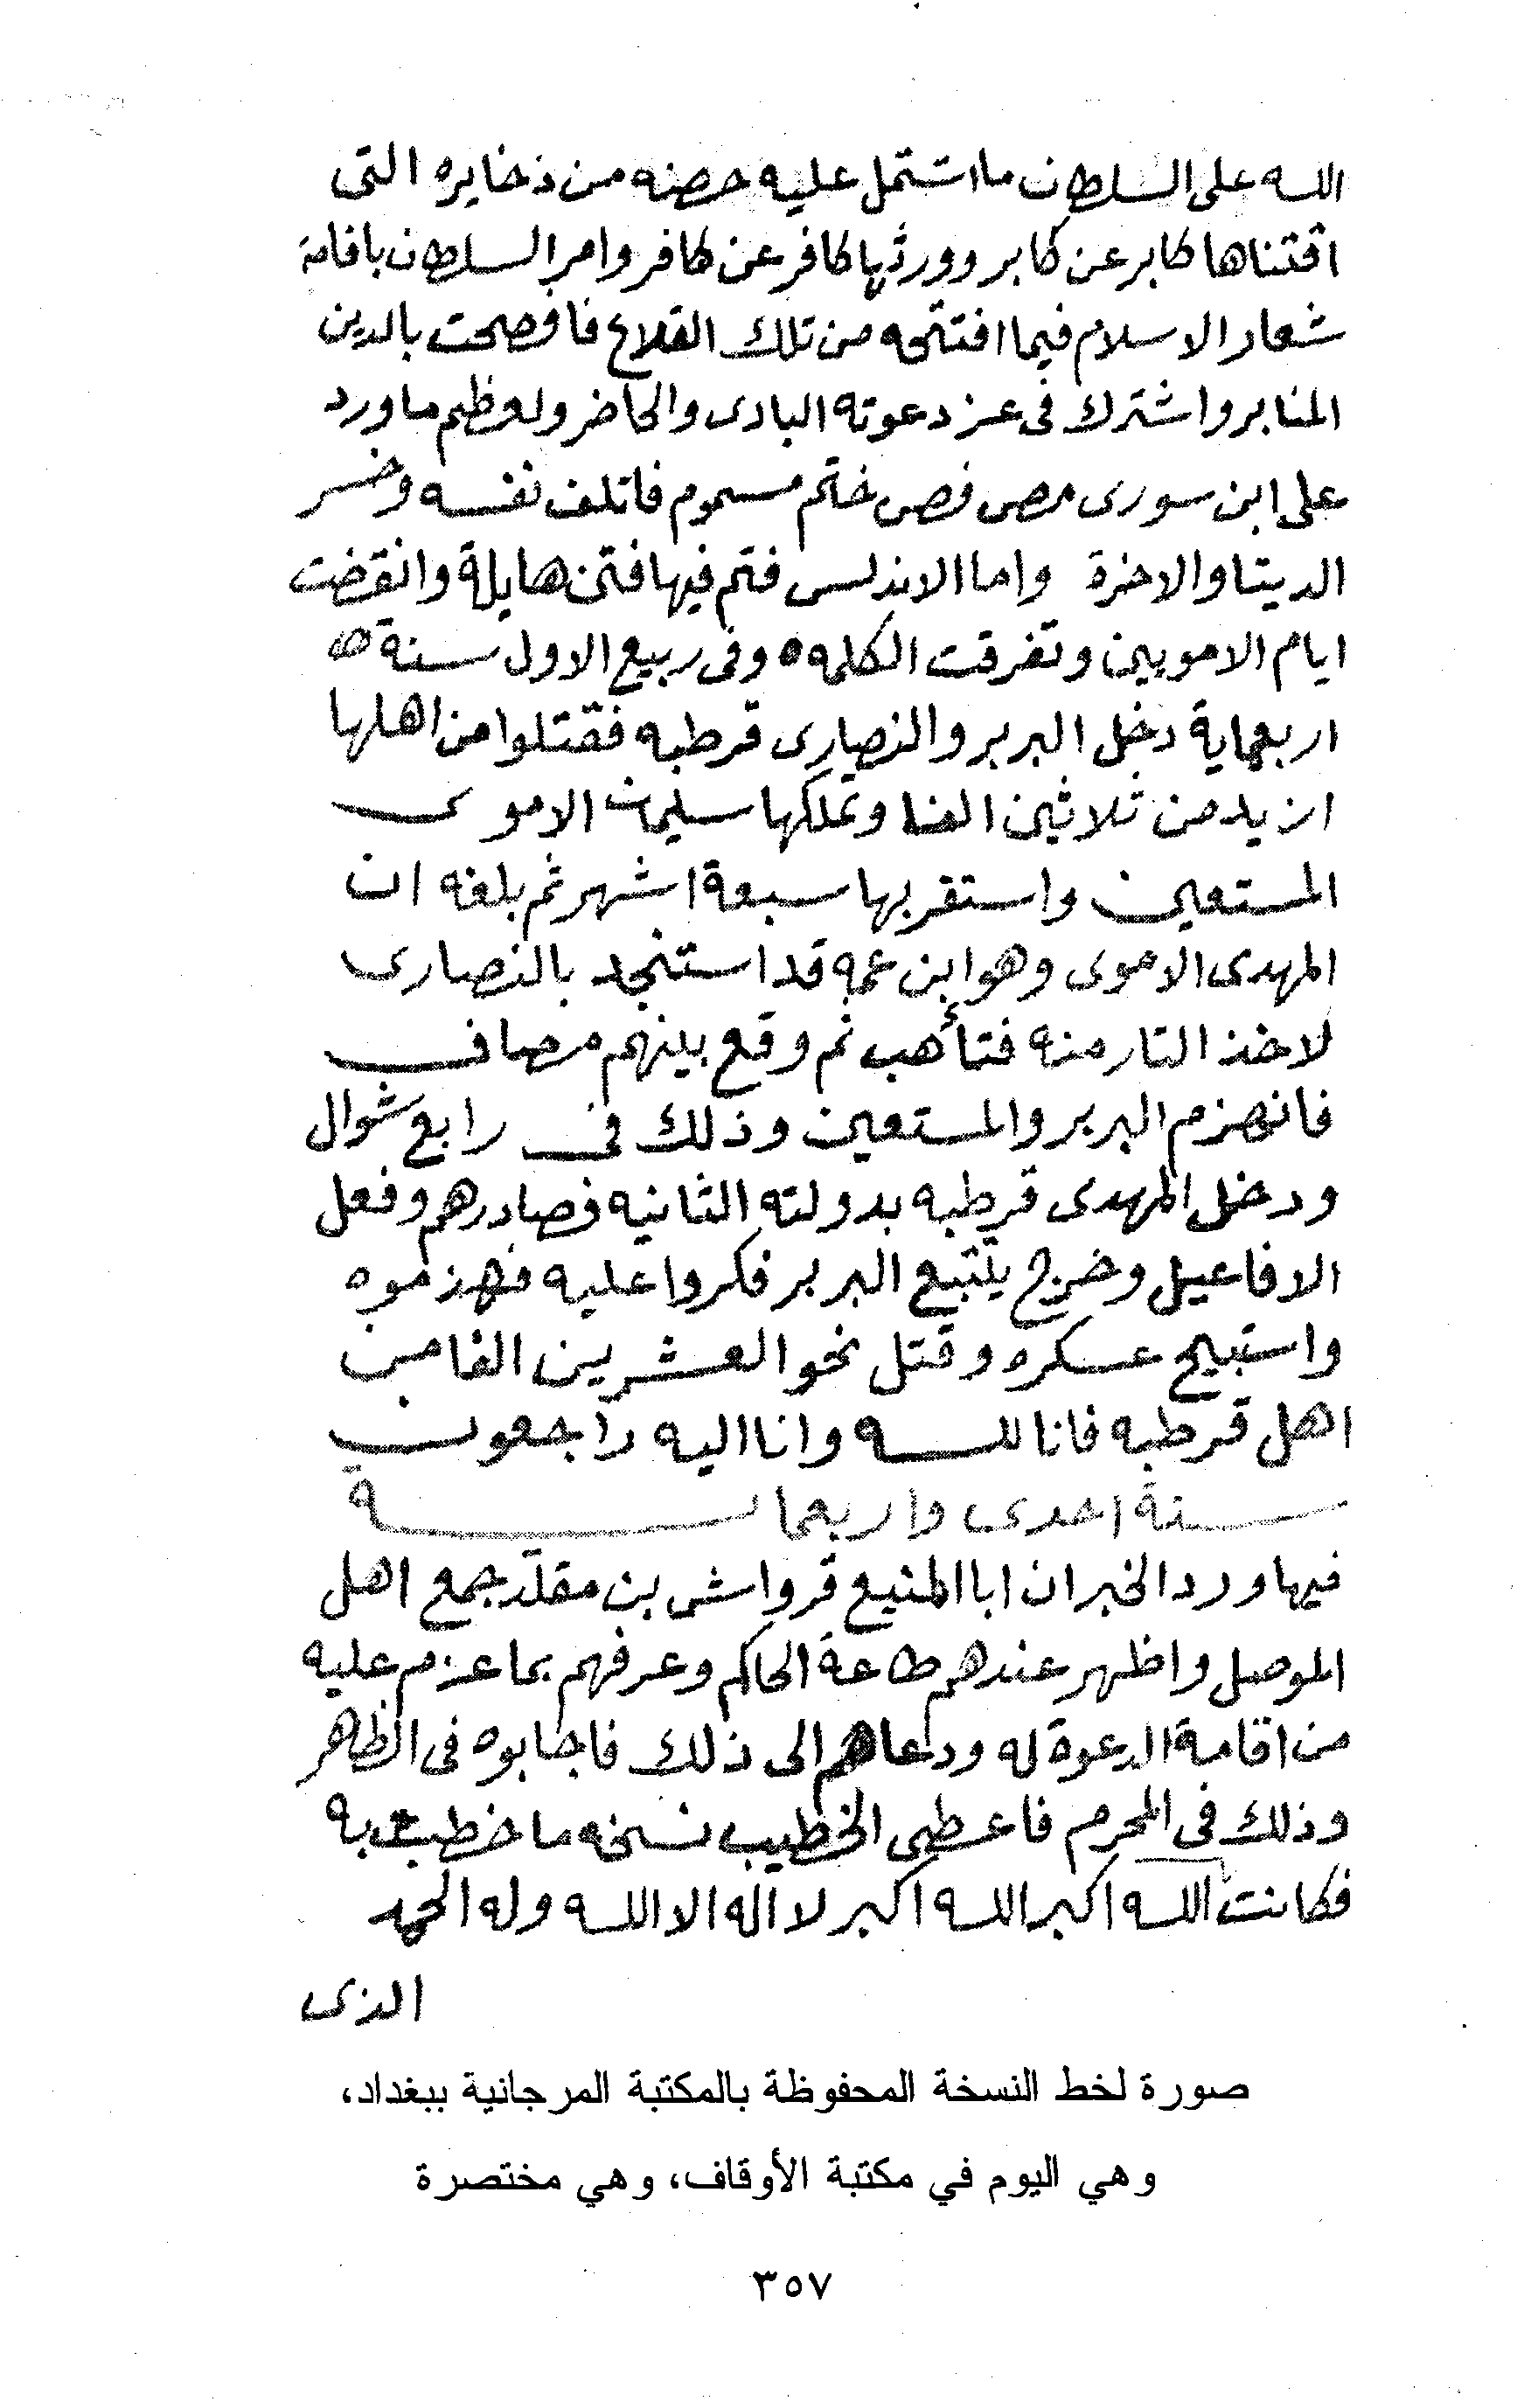 الله على السلطان ما اشتمل عليه حصنه من ذخايره التى
اقتناها كابر عن كابر وورثها كافر عن كافر وامر السلطان باقامة
شعار الاسلام فيما افتتحه من تلك القلاع فافصحت بالدين
المنابر واشترك فى عز دعوته البادى والحاضر ولعظم ما ورد
على ابن سورى مص فص خاتم مسموم فاتلف نفسه وخسر
الدينا والاخرة واما الاندلس فتم فيها فتن هايلة وانقضت
ايام الامويين وتفرقت الكلمه ه وفى ربيع الاول سنة
اربعماية دخل البربر والنصارى قرطبه فقتلوا من اهلها
ازيد من ثلاثين الفا وتملكها سليمان الاموى
المستعين واستقر بها سبعة اشهر ثم بلغه ان
المهدى الاموى وهو ابن عمه قد استنجد بالنصارى
لاخذ الثار منه فتأهب ثم وقع بينهم مصاف
فانهزم البربر والمستعين وذلك فى رابع شوال
ودخل المهدى قرطبه بدولته الثانيه فصادرهم وفعل
الافاعيل وخرج يتتبع البربر فكروا عليه فهزموه
واستبيح عسكره وقتل نحو العشرين الفا من
اهل قرطبه فانا لله وانا اليه راجعون
سنة احدى واربعمائة
فيها ورد الخبر ان ابا المنيع قرواش بن مقلد جمع اهل
الموصل واظهر عندهم طاعة الحاكم وعرفهم بما عزم عليه
من اقامة الدعوة له ودعاهم الى ذلك فاجابوه فى الظاهر
وذلك فى المحرم فاعطى الخطيب نسخه ما خطب به
فكانت الله اكبر الله اكبر لا اله الا الله وله الحمد
الذى
صورة لخط النسخة المحفوظة بالمكتبة المرجانية ببغداد،
وهي اليوم في مكتبة الأوقاف، وهي مختصرة
٣٥٧